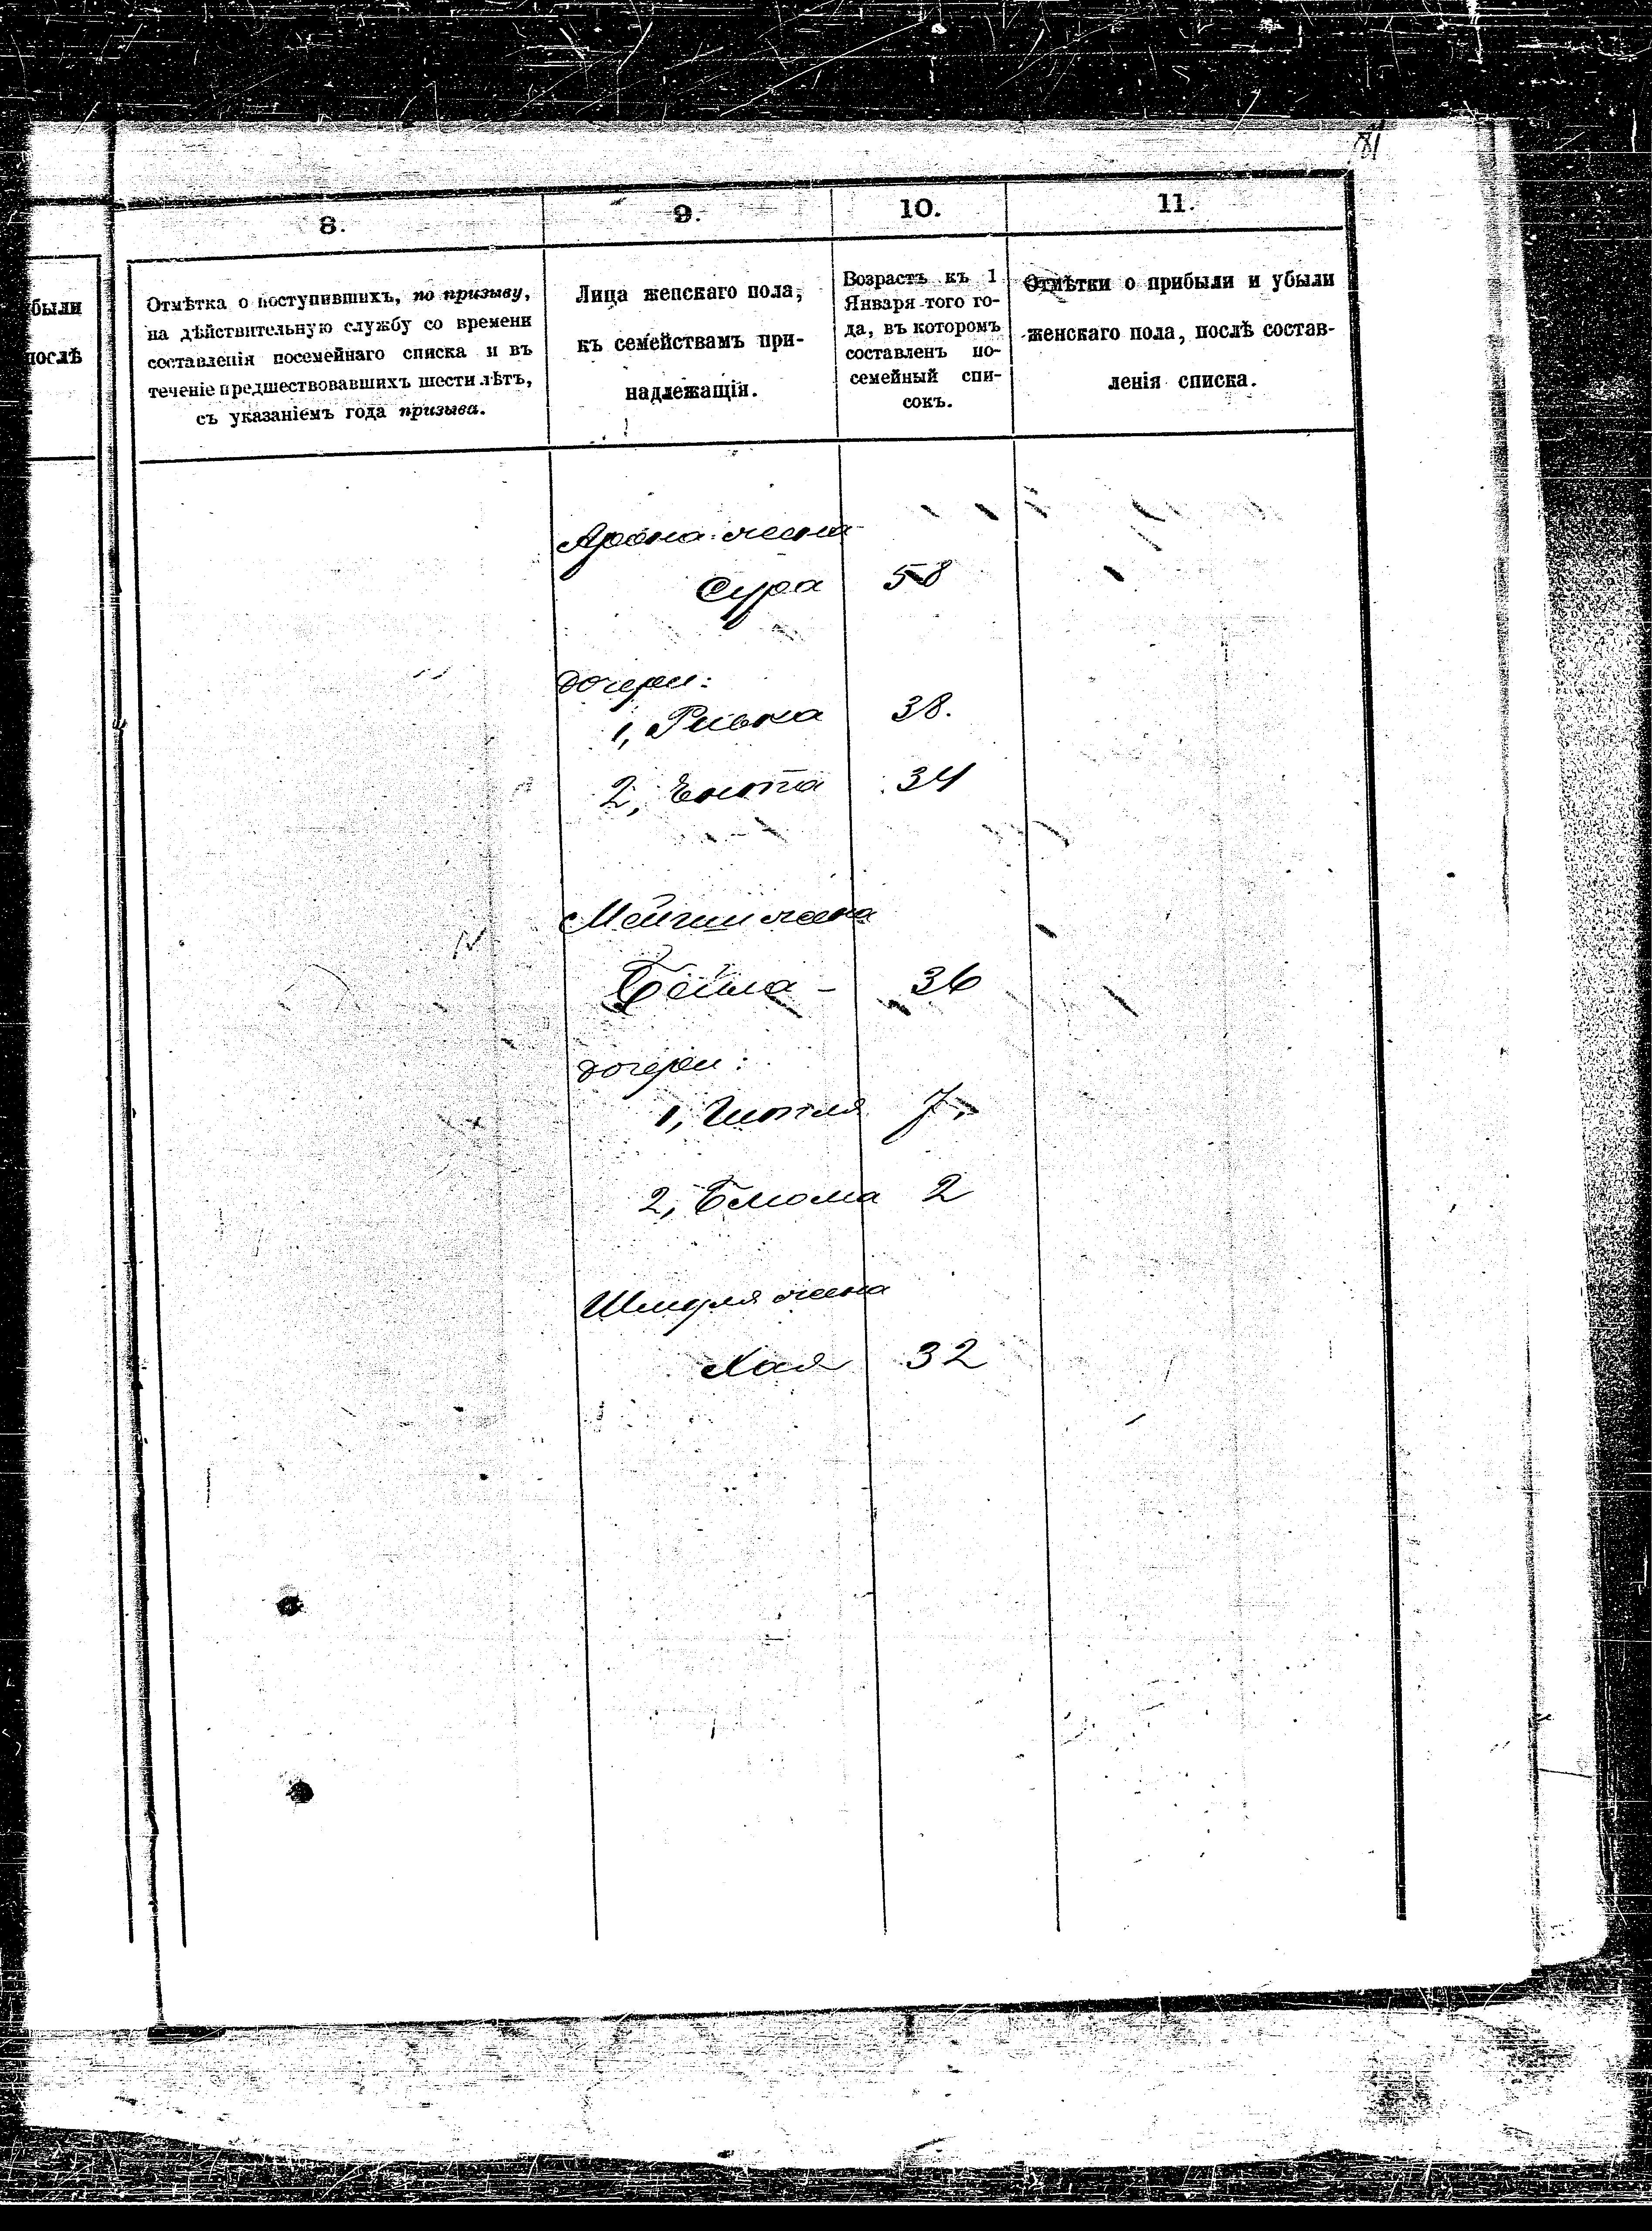 81
8.
9.
10.
11.
были
послѣ
Отмѣтка о поступившихъ, по призыву,
на дѣйствительную службу со времени
составленія посемейнаго списка и въ
теченіе предшествовавшихъ шести лѣтъ,
съ указаніемъ года призыва.
Лица женскаго пола,
къ семействамъ при-
надлежащія.
Возрастъ къ 1
Января того го-
да, въ которомъ
составленъ по-
семейный спи-
сокъ.
Отмѣтки о прибыли и убыли
женскаго пола, послѣ состав-
ленія списка.
Арона жена
Сура 58
дочери:
1, Ривка 38.
2, Ента 34
жена
Бейла - 36
дочери:
1, 7.
2, Блюма 2
Шмуля жена
Хая 32